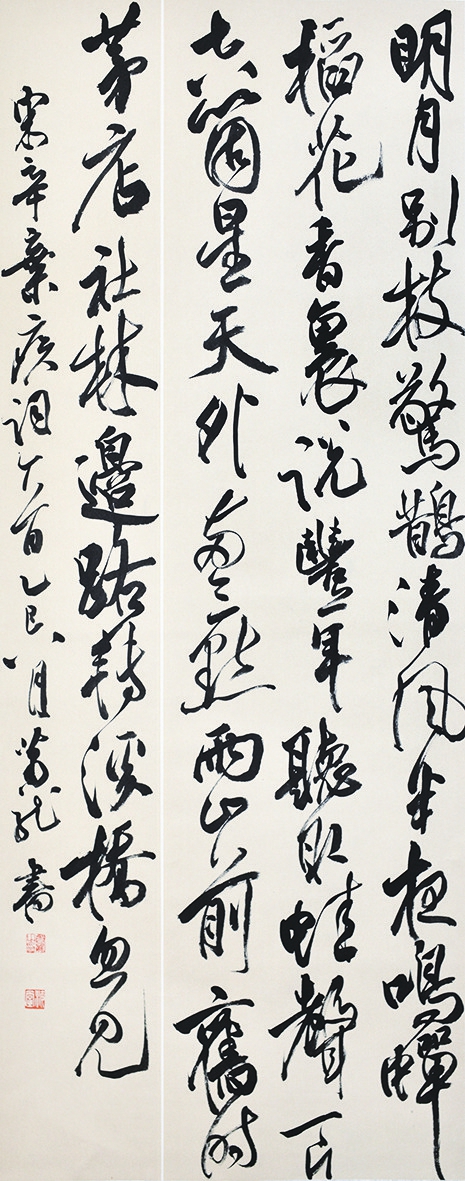 明月別枝驚鵲清風半夜鳴蟬
稻花香裏説豐年聽取蛙聲一片
七八箇星天外兩三點雨山前舊時
茅店社林邊路轉溪橋忽見
宋辛棄疾詞 乙巳八月 書